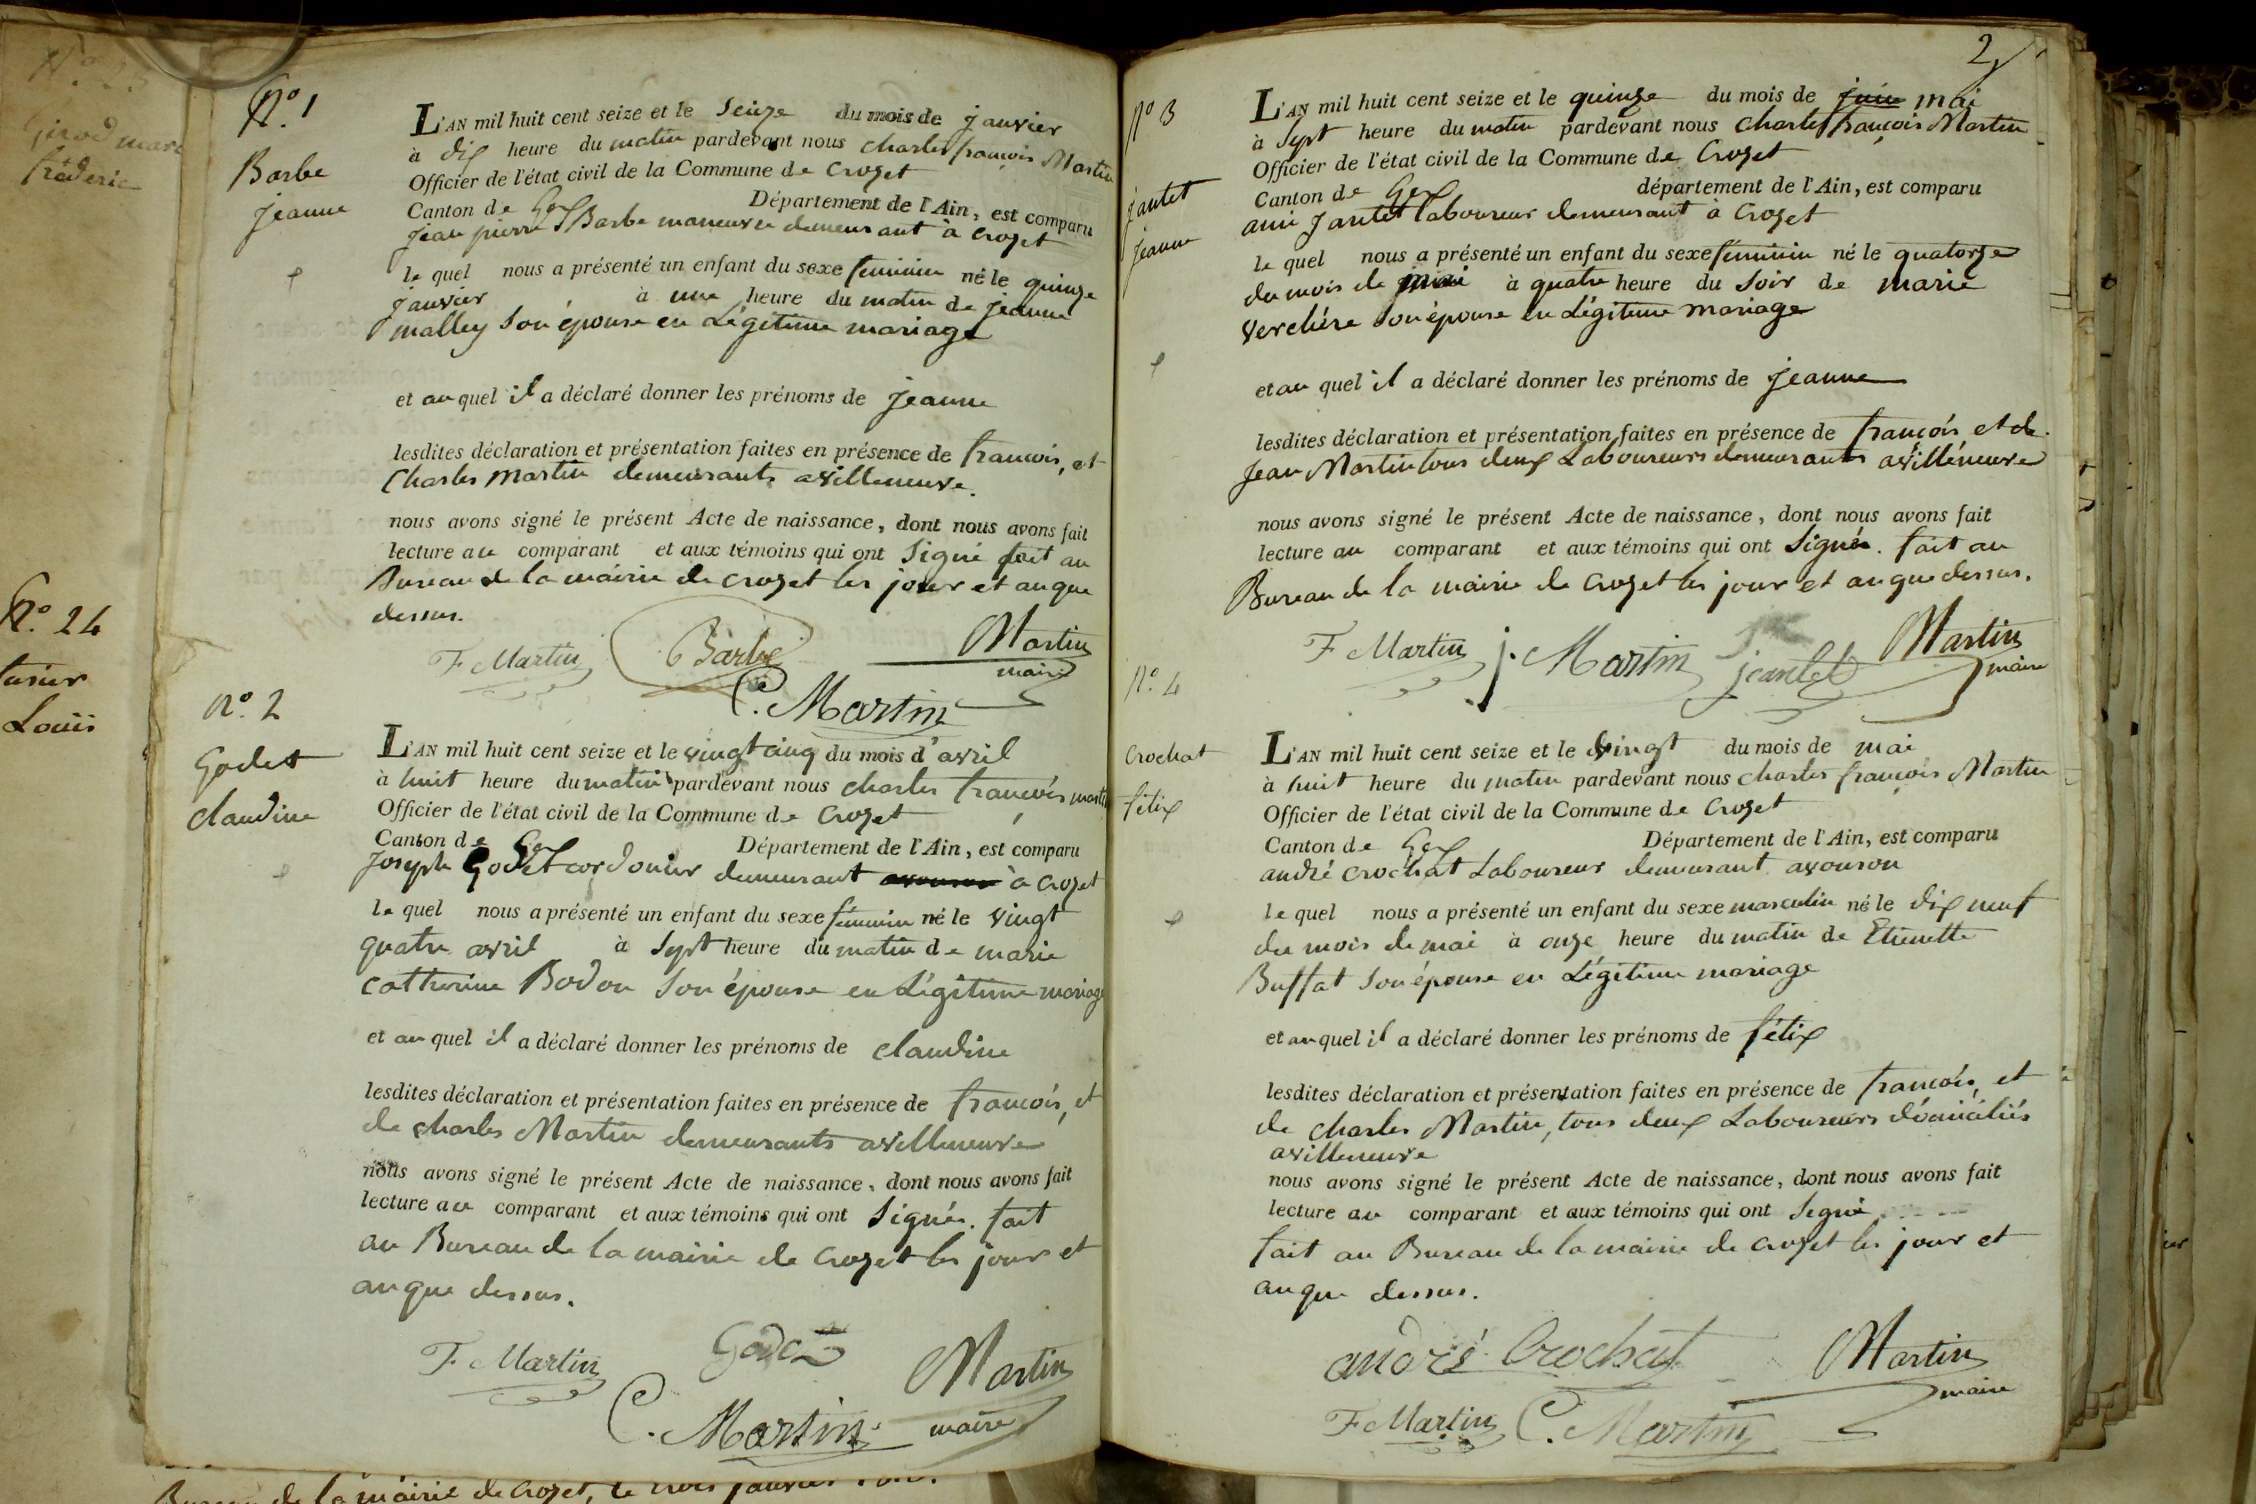 N.° 1
Barbe
jeanne
L'AN mil huit cent seize et le Seize du mois de janvier
à dix heure du matin pardevant nous charles françois Martin
Officier de l'état civil de la Commune de Crozet
Canton de Gex Département de l'Ain, est comparu
jean pierre Barbe maneuvre demeurant à Crozet
le quel nous a présenté un enfant du sexe féminin né le quinze
janvier à une heure du matin de jeanne
malley Son épouse en Légitime mariage
et au quel il a déclaré donner les prénoms de jeanne
lesdites déclaration et présentation faites en présence de francois, et
Charles Martin demeurants avilleneuve.
nous avons signé le présent Acte de naissance, dont nous avons fait
lecture au comparant et aux témoins qui ont Signé fait au
Bureau de la mairie de crozet les jour et an que
dessus.
F Martin Barbe Martin
maire
C. Martin
N.° 2
Godet
claudine
L'AN mil huit cent seize et le vingt cinq du mois d'avril
à huit heure du matin pardevant nous charles françois martin
Officier de l'état civil de la Commune de Crozet
Canton de Gex Département de l'Ain, est comparu
Joseph Godet cordonier demeurant avouson à Crozet
le quel nous a présenté un enfant du sexe féminin né le vingt
quatre avril à Sept heure du matin de marie
catherine Bodon Son épouse en Légitime mariage
et au quel il a déclaré donner les prénoms de claudine
lesdites déclaration et présentation faites en présence de françois, et
de charles Martin demeurants avilleneuve
nous avons signé le présent Acte de naissance, dont nous avons fait
lecture au comparant et aux témoins qui ont Signés. fait
au Bureau de la mairie de Crozet les jour et
an que dessus.
F. Martin Godet Martin
C. Martin maire
2
N° 3
jantet
jeanne
L'AN mil huit cent seize et le quinze du mois de juin mai
à Sept heure du matin pardevant nous Charles françois Martin
Officier de l'état civil de la Commune de Crozet
Canton de Gex département de l'Ain, est comparu
ami Jantet laboureur demeurant à Crozet
le quel nous a présenté un enfant du sexe féminin né le quatorze
du mois de mai à quatre heure du Soir de marie
verchére Son épouse en Légitime mariage
et au quel il a déclaré donner les prénoms de jeanne
lesdites déclaration et présentation faites en présence de françois et de
Jean Martin tous deux Laboureurs demeurants avilleneuve
nous avons signé le présent Acte de naissance, dont nous avons fait
lecture au comparant et aux témoins qui ont Signés. fait au
Bureau de la mairie de Crozet les jour et an que dessus.
F Martin j. Martin jantet Martin
maire
N.° 4
Crochat
félix
L'AN mil huit cent seize et le vingt du mois de mai
à huit heure du matin pardevant nous charles françois Martin
Officier de l'état civil de la Commune de Crozet
Canton de Gex Département de l'Ain, est comparu
andré crochat Laboureur demeurant avouson
le quel nous a présenté un enfant du sexe masculin né le dix neuf
du mois de mai à onze heure du matin de Etienette
Buffat Son épouse en Légitime mariage
et au quel il a déclaré donner les prénoms de félix
lesdites déclaration et présentation faites en présence de françois, et
de charles Martin, tous deux Laboureurs domiciliés
avilleneuve
nous avons signé le présent Acte de naissance, dont nous avons fait
lecture au comparant et aux témoins qui ont Signé
fait au Bureau de la mairie de crozet les jour et
an que dessus.
andré Crochat Martin
maire
F Martin C. Martin
Girod marc
fréderic
N.° 24
Louis
Bureau de la mairie de Crozet, le trois janvier